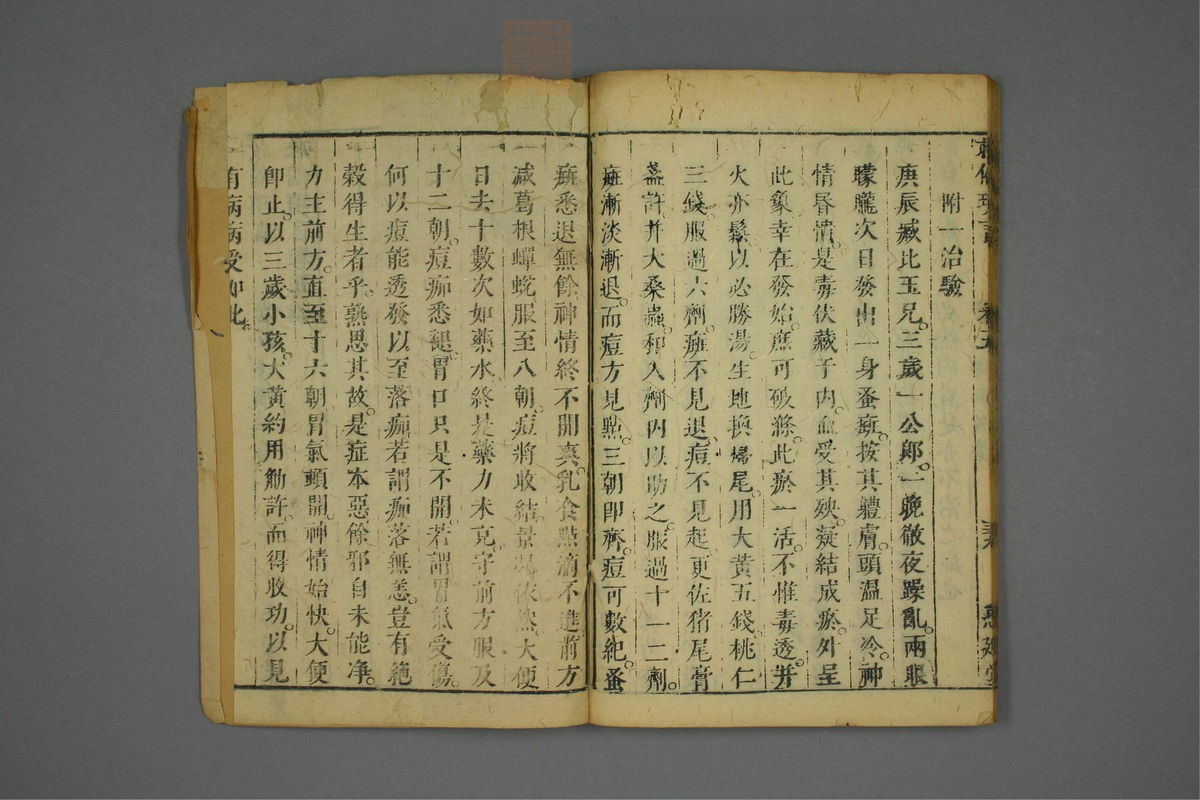 附一治驗
庚辰臧比玉兄。三歲一公郎。一晚徹夜躁亂。兩眼
矇矓次日發出一身蚤痲。按其軆膚。頭溫足冷。神
情昏憒。是毒伏藏于内。血受其殃。凝結成瘀。外呈
此象。幸在發始。庶可破滌。此瘀一活。不惟毒透。并
火亦鬆。以必勝湯。生地換歸尾。用大黃五錢。桃仁
三錢。服過六劑。痲不見退。痘不見起。更佐猪尾膏
盞許。并大桑蟲。和入劑内以助之。服過十一二劑。
痲漸淡漸退。而痘方見點。三朝即齊。痘可數紀。蚤
痲悉退無餘。神情終不開爽。乳食點滴不進。前方
减葛根蟬蛻。服至八朝。痘將收結。景塲依然。大便
日去十數次。如藥水。終是藥力未克。守前方服及
十二朝。痘痂悉褪。胃口只是不開。若謂胃氣受傷。
何以痘能透發。以至落痂。若謂痂落無恙。豈有絶
榖得生者乎。熟思其故。是症本惡。餘邪自未能净。
力主前方。直至十六朝。胃氣頓開。神情始快。大便
卽止。以三歲小孩。大黃約用觔許。而得收功。以見
有病病受如此。